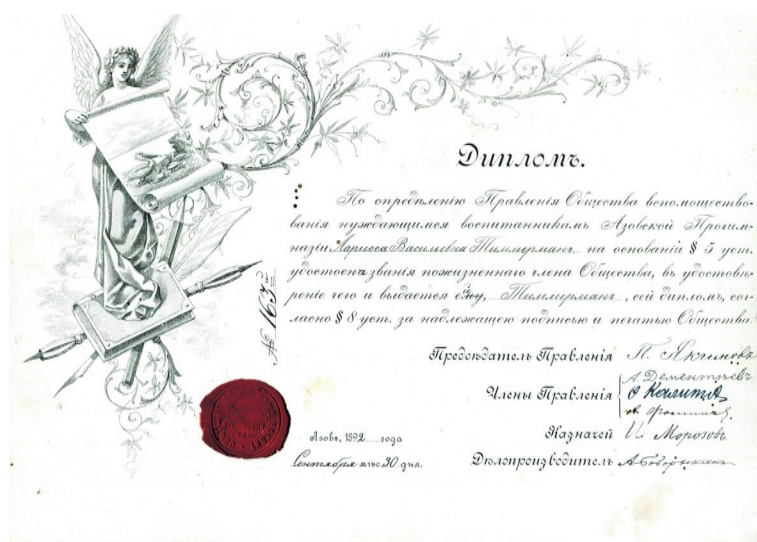 Дипломъ.
По опредѣленію Правленія Общества вспомощество-
ванія нуждающимся воспитанникамъ Азовской Прогим-
назіи Лариса Васильевна Тиммерманъ на основаніи § 5 уст.
удостоена званія пожизненнаго члена Общества, въ удостовѣ-
реніе чего и выдается ей, Тиммерманъ, сей дипломъ, сог-
ласно § 8 уст. за надлежащею подписью и печатью Общества.
№ 163
Предсѣдатель Правленія П. Якимовъ
А. Дементьевъ
Члены Правленія О Калита
Казначей И Морозовъ
Дѣлопроизводитель
Азовъ, 1892 года
Сентября мѣс. 30 дня.